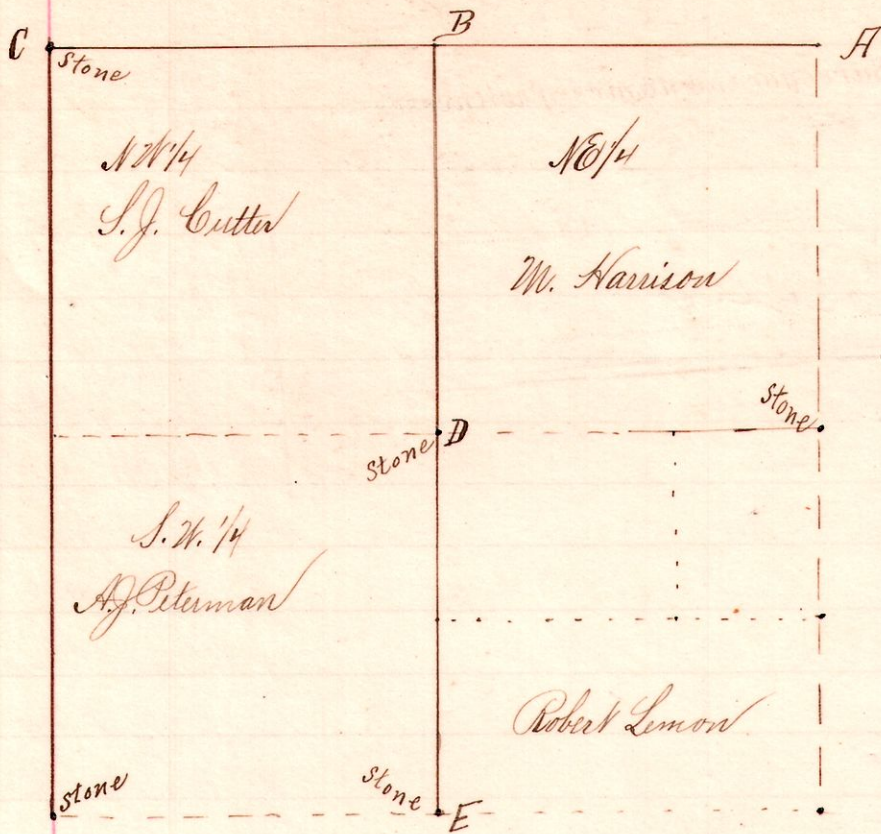 C
B
A
Stone
N W 1/4
S. J. Cutter
NE 1/4
M. Harrison
Stone
D
Stone
S. W. 1/4
A. J. Peterman
Robert Lemon
Stone
Stone
E